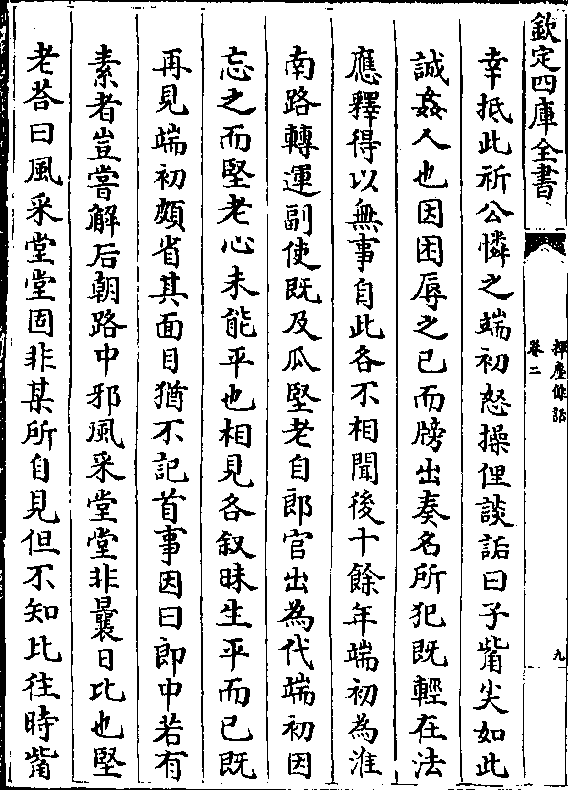 欽定四庫全書
揮麈餘話
卷二
九
幸抵此祈公憐之端初怒操俚談詬曰子觜尖如此
誠姦人也因困辱之已而牓出奏名所犯既輕在法
應釋得以無事自此各不相聞後十餘年端初為淮
南路轉運副使既及瓜堅老自郎官出為代端初因
忘之而堅老心未能平也相見各叙昧生平而已既
再見端初頗省其面目猶不記首事因曰郎中若有
素者豈嘗解后朝路中邪風采堂堂非曩日比也堅
老荅曰風采堂堂固非某所自見但不知比往時觜